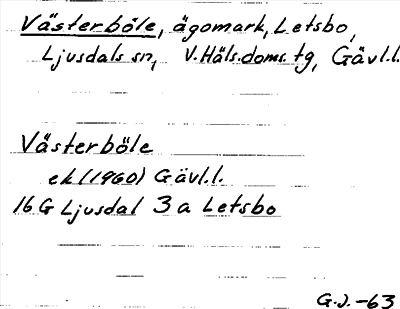 Västerböle, ägomark, Letsbo,
Ljusdals sn, V.Häls.doms.tg, Gävl.l.
Västerböle
ek (1960) Gävl.l.
16 G Ljusdal 3 a Letsbo
G.J. -63